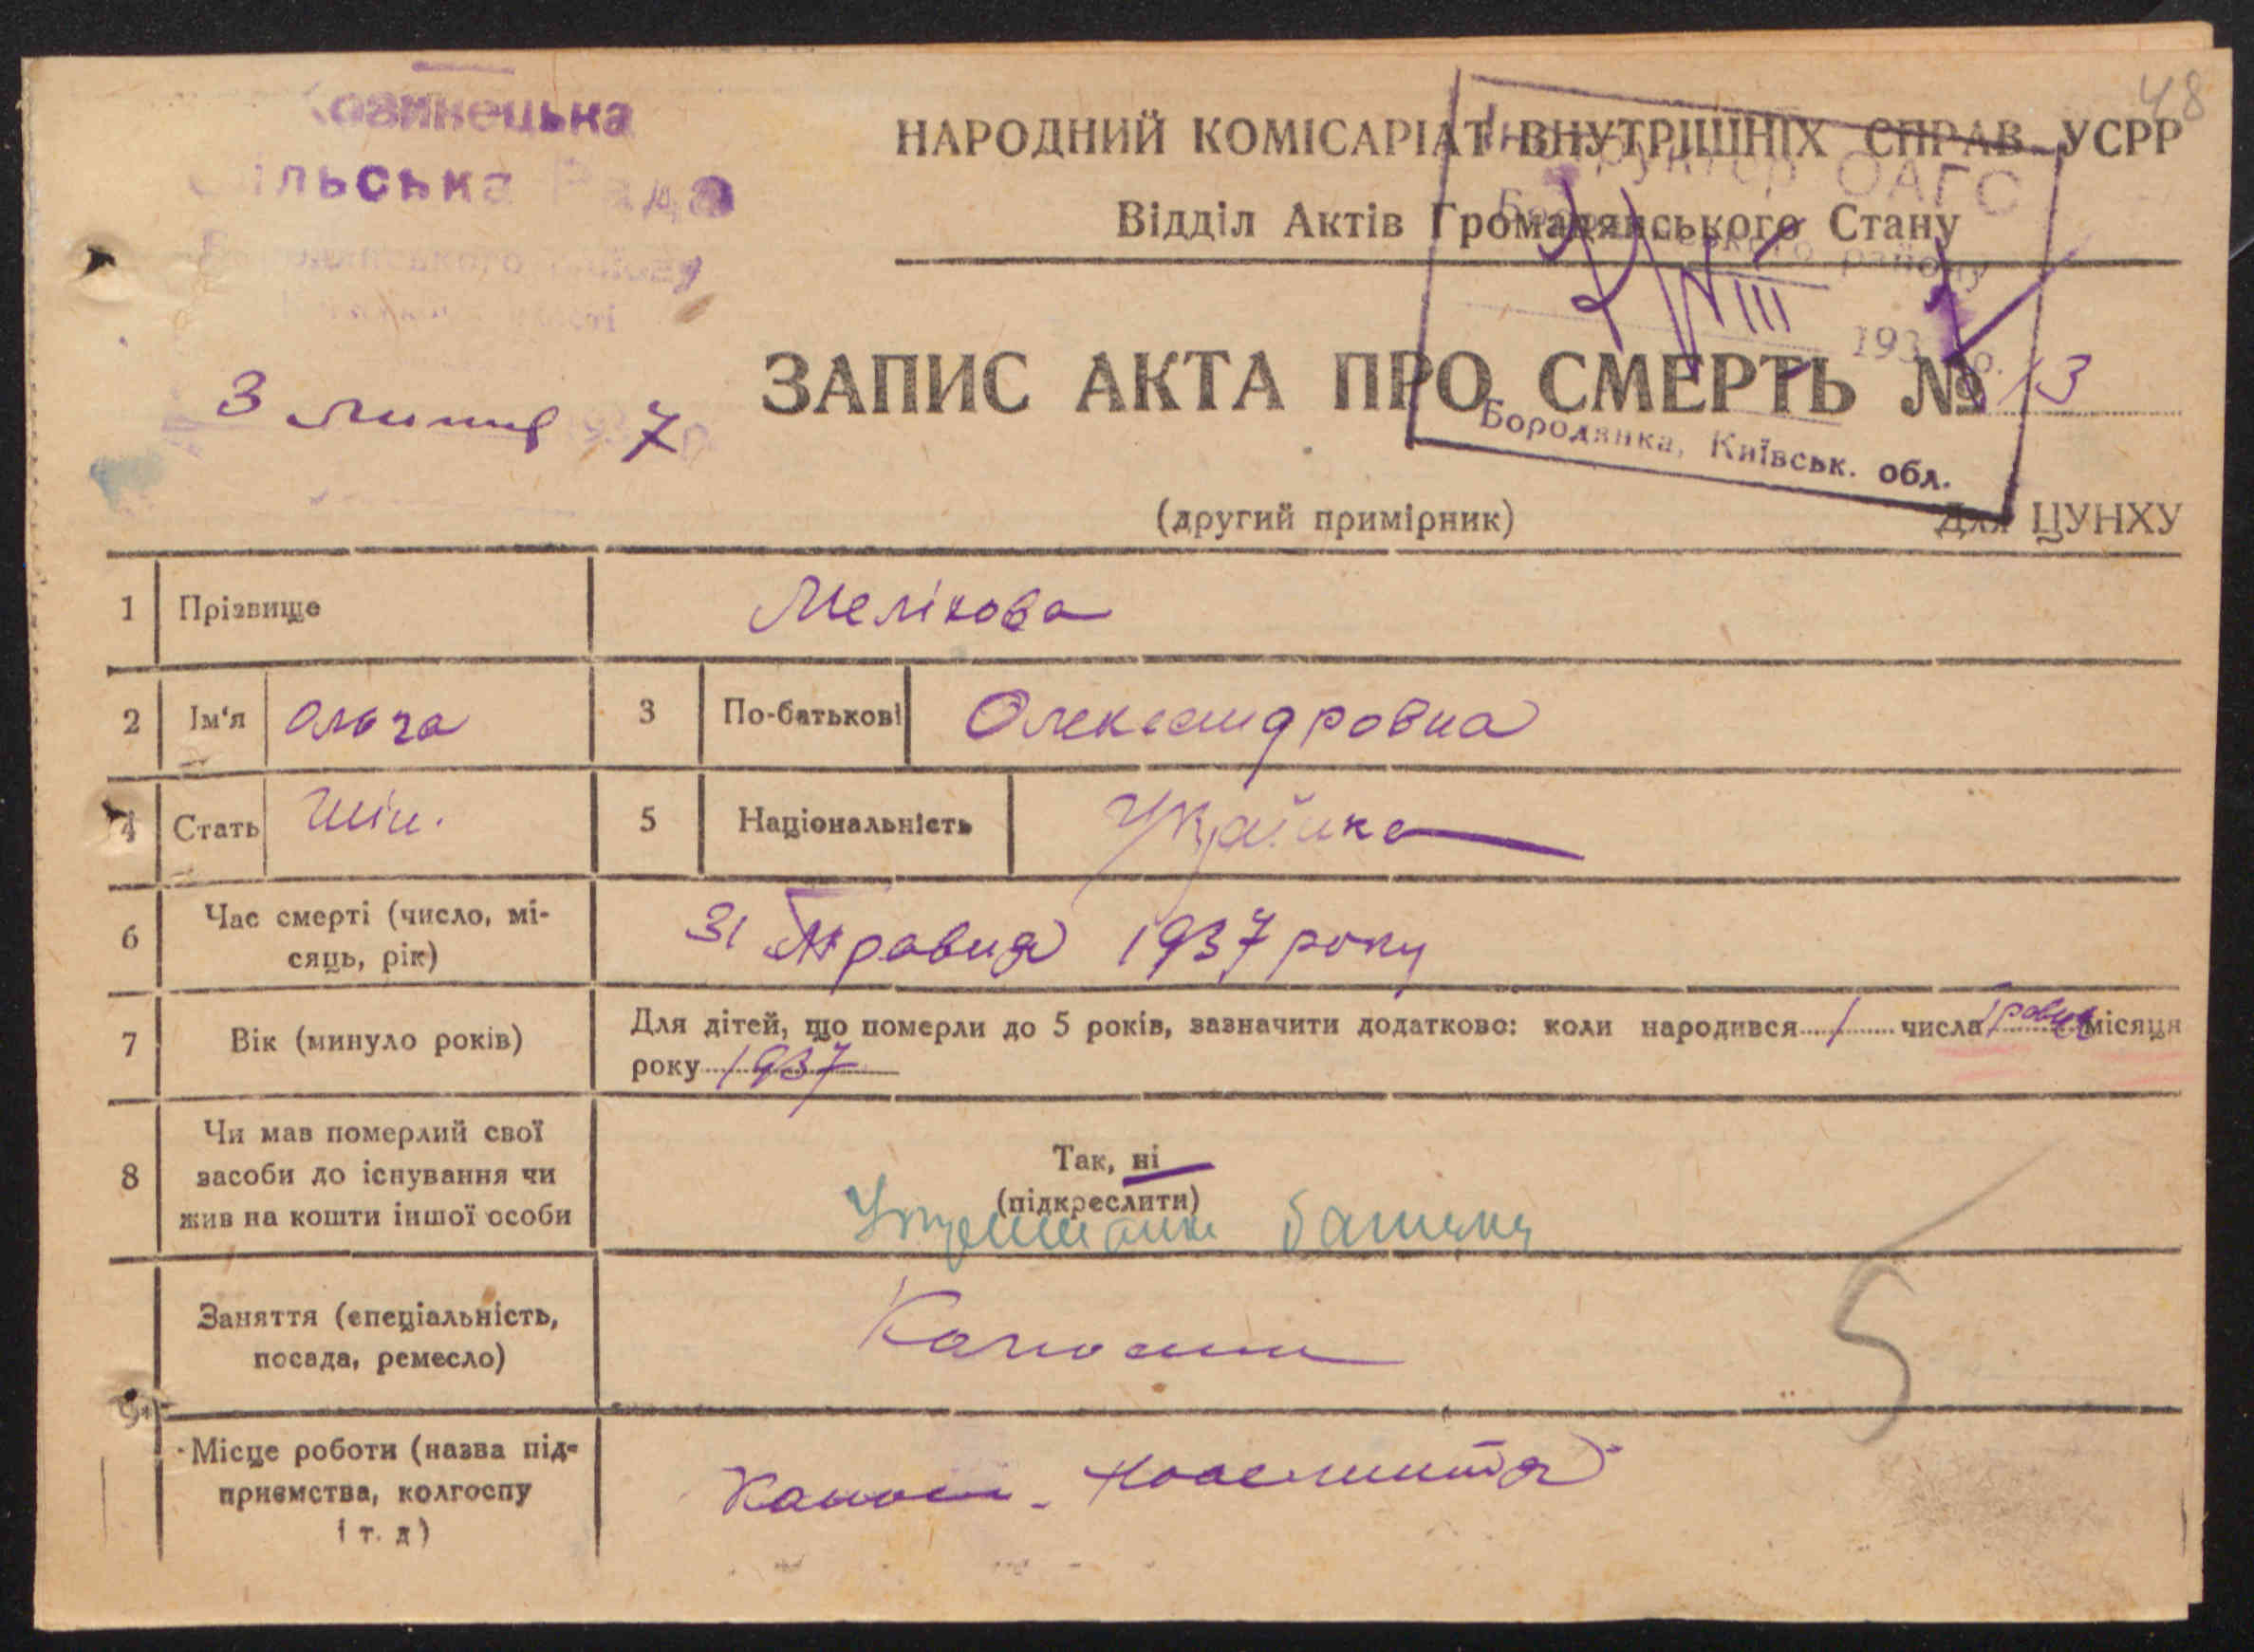 48
НАРОДНИЙ КОМІСАРІАТ ВНУТРІШНІХ СПРАВ УСРР
ільська Рада
ОАГС
Відділ Актів Громадянського Стану
району
VIII 193
ЗАПИС АКТА ПРО СМЕРТЬ № 13
3 липня 7
Бородянка, Київськ. обл.
(другий примірник) Для ЦУНХУ
1 Прізвище Мелікова
2 Ім'я Ольга 3 По-батькові Олександровна
4 Стать Жін. 5 Національність Українка
6 Час смерті (число, мі-
сяць, рік) 31 Травня 1937 року
7 Вік (минуло років) Для дітей, що померли до 5 років, зазначити додатково: коли народився 1 числа Травня місяця
року 1937
8 Чи мав померлий свої
засоби до існування чи
жив на кошти іншої особи
Так, ні
(підкреслити)
5
Заняття (спеціальність,
посада, ремесло)
9
Місце роботи (назва під-
приємства, колгоспу
і т. д)